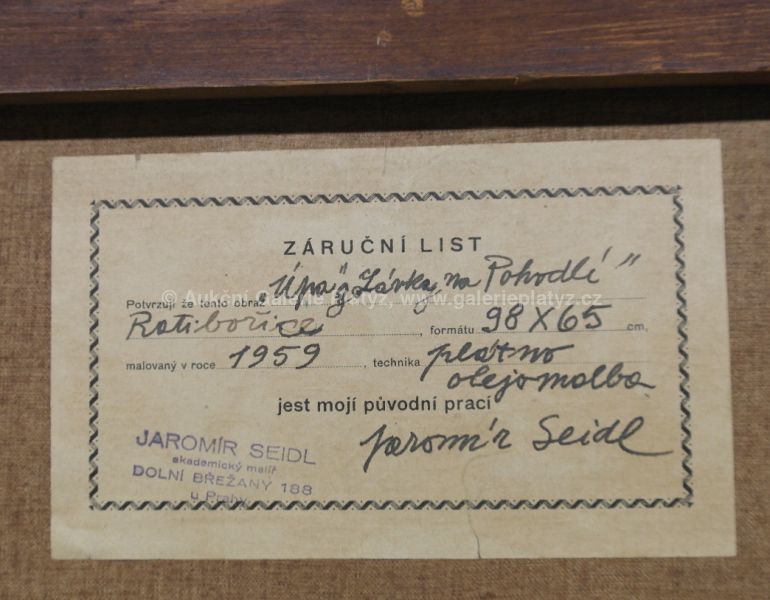 ZÁRUČNÍ LIST
Potvrzuji že tento obraz „Úpa“ „Lávka na Pohodlí“
© Aukční Galerie Platýz, www.galerieplatyz.cz
Ratibořice, formátu 98 X 65 cm,
malovaný v roce 1959, technika plátno
olejomalba
jest mojí původní prací
Jaromír Seidl
JAROMÍR SEIDL
akademický malíř
DOLNÍ BŘEŽANY 188
u Prahy